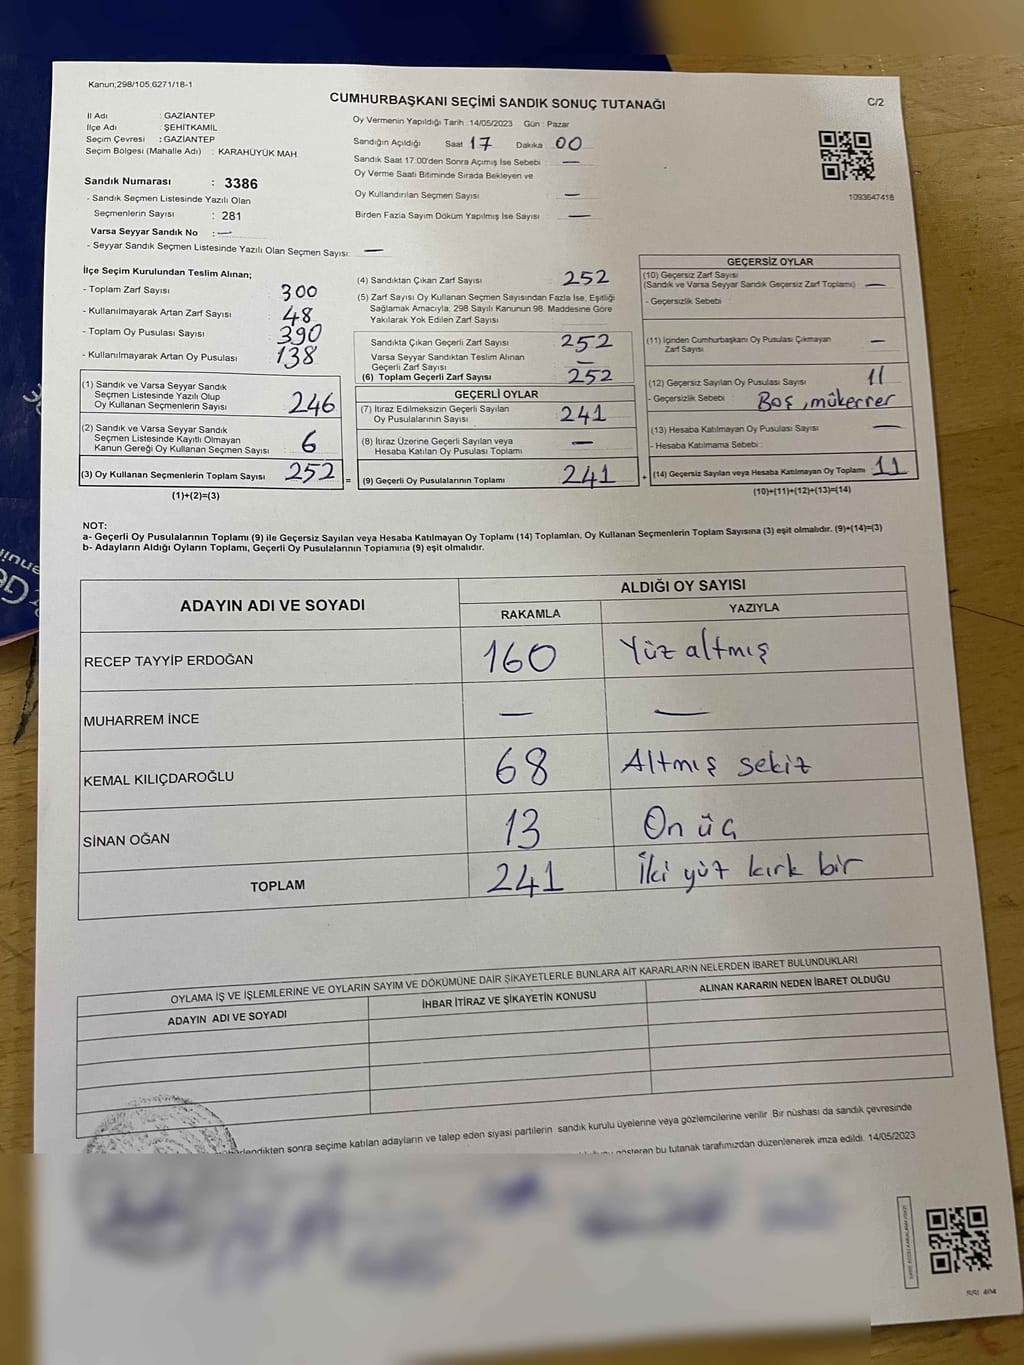 Kanun;298/105;6271/18-1
CUMHURBAŞKANI SEÇİMİ SANDIK SONUÇ TUTANAĞI
C/2
İl Adı : GAZİANTEP
İlçe Adı : ŞEHİTKAMİL
Seçim Çevresi : GAZİANTEP
Seçim Bölgesi (Mahalle Adı) : KARAHÜYÜK MAH
Sandık Numarası : 3386
- Sandık Seçmen Listesinde Yazılı Olan
Seçmenlerin Sayısı : 281
Varsa Seyyar Sandık No : —
- Seyyar Sandık Seçmen Listesinde Yazılı Olan Seçmen Sayısı: —
Oy Vermenin Yapıldığı Tarih : 14/05/2023 Gün : Pazar
Sandığın Açıldığı Saat 17 Dakika 00
Sandık Saat 17:00'den Sonra Açımış İse Sebebi : —
Oy Verme Saati Bitiminde Sırada Bekleyen ve
Oy Kullandırılan Seçmen Sayısı : —
Birden Fazla Sayım Döküm Yapılmış İse Sayısı : —
1093647418
İlçe Seçim Kurulundan Teslim Alınan;
- Toplam Zarf Sayısı 300
- Kullanılmayarak Artan Zarf Sayısı 48
- Toplam Oy Pusulası Sayısı 390
- Kullanılmayarak Artan Oy Pusulası 138
(1) Sandık ve Varsa Seyyar Sandık
Seçmen Listesinde Yazılı Olup
Oy Kullanan Seçmenlerin Sayısı 246
(2) Sandık ve Varsa Seyyar Sandık
Seçmen Listesinde Kayıtlı Olmayan
Kanun Gereği Oy Kullanan Seçmen Sayısı 6
(3) Oy Kullanan Seçmenlerin Toplam Sayısı 252 =
(1)+(2)=(3)
(4) Sandıktan Çıkan Zarf Sayısı 252
(5) Zarf Sayısı Oy Kullanan Seçmen Sayısından Fazla İse, Eşitliği
Sağlamak Amacıyla; 298 Sayılı Kanunun 98. Maddesine Göre
Yakılarak Yok Edilen Zarf Sayısı
Sandıkta Çıkan Geçerli Zarf Sayısı 252
Varsa Seyyar Sandıktan Teslim Alınan
Geçerli Zarf Sayısı —
(6) Toplam Geçerli Zarf Sayısı 252
GEÇERLİ OYLAR
(7) İtiraz Edilmeksizin Geçerli Sayılan
Oy Pusulalarının Sayısı 241
(8) İtiraz Üzerine Geçerli Sayılan veya
Hesaba Katılan Oy Pusulası Toplamı —
(9) Geçerli Oy Pusulalarının Toplamı 241 +
GEÇERSİZ OYLAR
(10) Geçersiz Zarf Sayısı
(Sandık ve Varsa Seyyar Sandık Geçersiz Zarf Toplamı) —
- Geçersizlik Sebebi :
(11) İçinden Cumhurbaşkanı Oy Pusulası Çıkmayan
Zarf Sayısı —
(12) Geçersiz Sayılan Oy Pusulası Sayısı 11
- Geçersizlik Sebebi : Boş, mükerrer
(13) Hesaba Katılmayan Oy Pusulası Sayısı —
- Hesaba Katılmama Sebebi :
(14) Geçersiz Sayılan veya Hesaba Katılmayan Oy Toplamı 11
(10)+(11)+(12)+(13)=(14)
NOT:
a- Geçerli Oy Pusulalarının Toplamı (9) ile Geçersiz Sayılan veya Hesaba Katılmayan Oy Toplamı (14) Toplamları, Oy Kullanan Seçmenlerin Toplam Sayısına (3) eşit olmalıdır. (9)+(14)=(3)
b- Adayların Aldığı Oyların Toplamı, Geçerli Oy Pusulalarının Toplamına (9) eşit olmalıdır.
ADAYIN ADI VE SOYADI
ALDIĞI OY SAYISI
RAKAMLA YAZIYLA
RECEP TAYYİP ERDOĞAN 160 Yüz altmış
MUHARREM İNCE — —
KEMAL KILIÇDAROĞLU 68 Altmış sekiz
SİNAN OĞAN 13 On üç
TOPLAM 241 İki yüz kırk bir
OYLAMA İŞ VE İŞLEMLERİNE VE OYLARIN SAYIM VE DÖKÜMÜNE DAİR ŞİKAYETLERLE BUNLARA AİT KARARLARIN NELERDEN İBARET BULUNDUKLARI
ADAYIN ADI VE SOYADI İHBAR İTİRAZ VE ŞİKAYETİN KONUSU ALINAN KARARIN NEDEN İBARET OLDUĞU
sonra seçime katılan adayların ve talep eden siyasi partilerin sandık kurulu üyelerine veya gözlemcilerine verilir Bir nüshası da sandık çevresinde
gösteren bu tutanak tarafımızdan düzenlenerek imza edildi. 14/05/2023